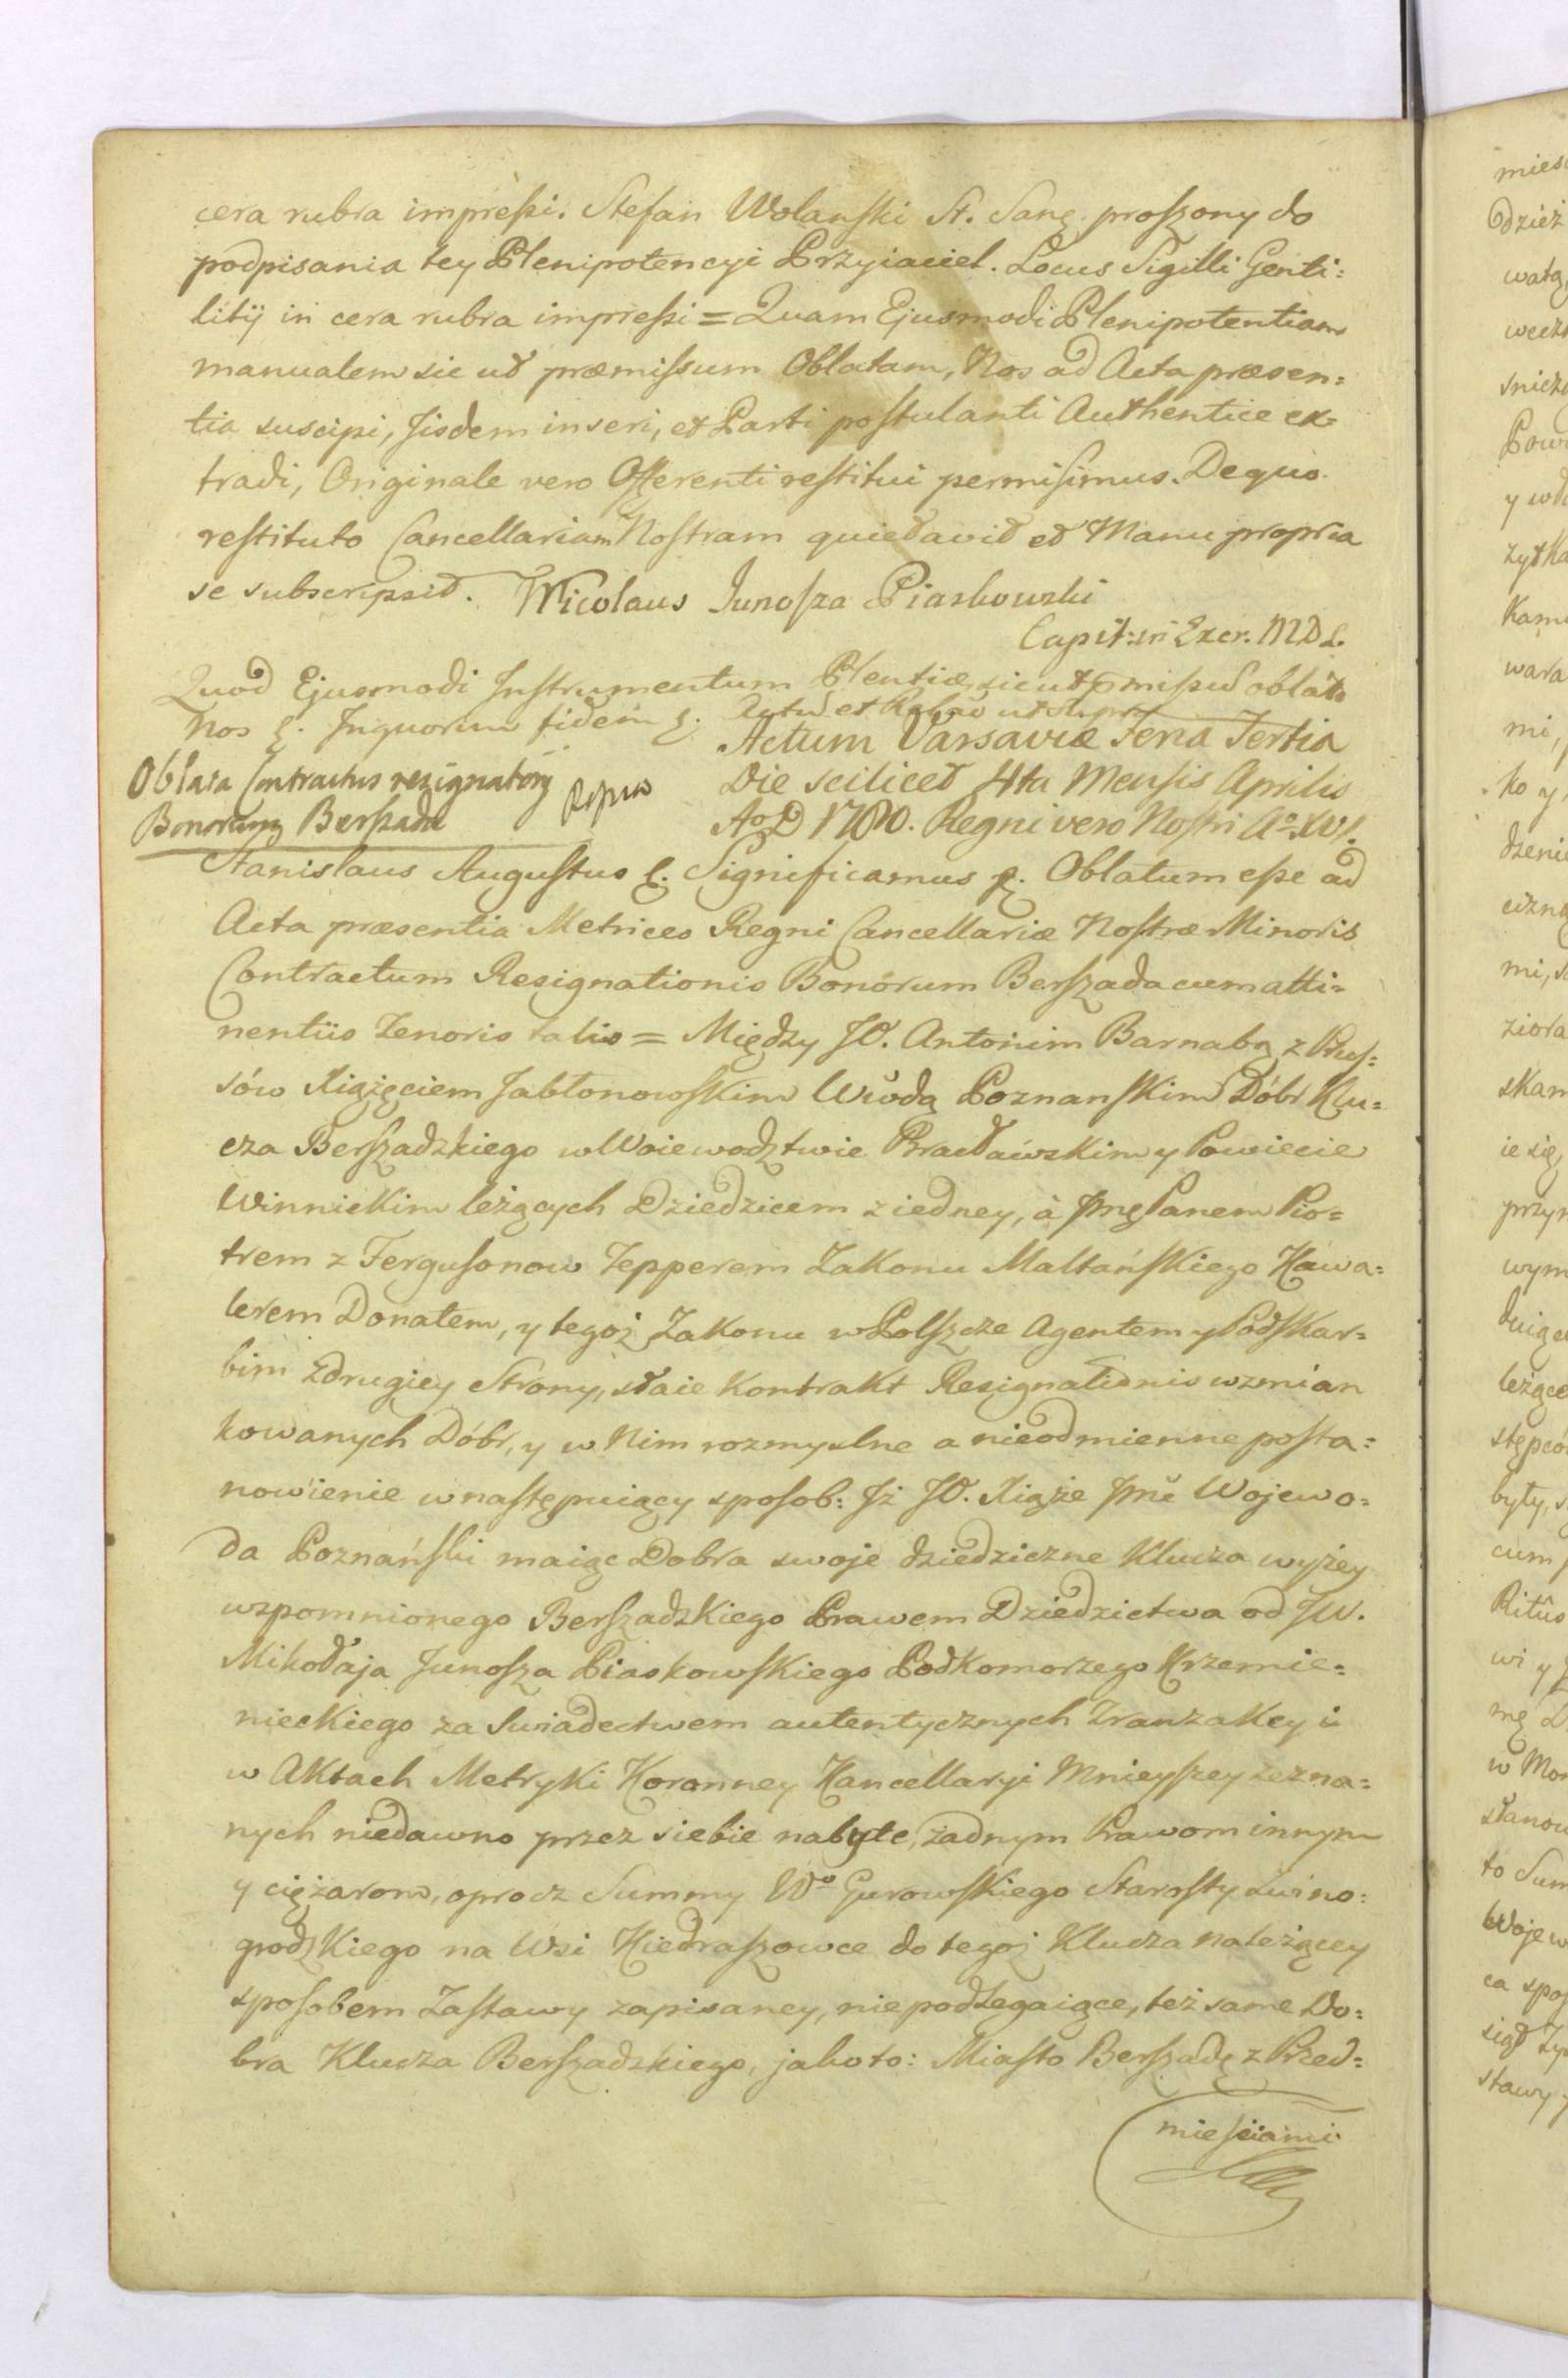 cera rubra impressi. Stefan Wolanski St. Sang. proszony do
podpisania tey Plenipotencyi Przyiaciel. Locus Sigilli Genti=
litij in cera rubra impressi = Quam Ejusmodi Plenipotentiam
manualem sic ut præmissum Oblatam, Nos ad Acta præsen=
tia suscipi, Iisdem inseri, et Parti postulanti Authentice ex=
tradi, Originale vero Offerenti restitui permisimus. De quo
restituto Cancellariam Nostram quietavit et Manu propria
se subscripsit. Nicolaus Junosza Piaskowski
Capit: in Exer. M D L.
Quod Ejusmodi Instrumentum Plentiæ sicut pmissũ oblato
Nos &. Inquorum fidem &. Actũ et Datũ ut supra
Actum Varsaviæ Feria Tertia
Die scilicet 4ta Mensis Aprilis
Ao D 1780. Regni vero Nostri Ao XVI.
Oblata Contractus rezignatorÿ
Bonorum Berszada
Stanislaus Augustus &. Significamus &. Oblatum esse ad
Acta præsentia Metrices Regni Cancellariæ Nostræ Minoris
Contractum Resignationis Bonorum Berszada cum atti=
nentiis Tenoris talis = Między JO. Antonim Barnabą z Prus=
sów Xiążęciem Jabłonowskim Wwdą Poznanskim Dóbr Klu=
cza Berszadzkiego w Woiewodztwie Bracławskim y Powiecie
Winnickim leżących Dziedzicem z iedney, à Jmę Panem Pio=
trem z Fergusonow Tepperem Zakonu Maltańskiego Kawa=
lerem Donatem, y tegoż Zakonu w Polszcze Agentem y Podskar=
bim z drugiey Strony, staie Kontrakt Resignationis wzmian
kowanych Dóbr, y w Nim rozmyslne a nieodmienne posta=
nowienie w następuiący sposob: Iż JO. Xiąże Jmć Wojewo=
da Poznański maiąc Dobra swoje dziedziczne Klucza wyżey
wspomnionego Berszadzkiego Prawem Dziedzictwa od JW.
Mikołaja Junosza Piaskowskiego Podkomorzego Krzemie=
nieckiego za Swiadectwem autentycznych Tranzakcyi
w Aktach Metryki Koronney Kancellaryi Mnieyszey zezna=
nych niedawno przez siebie nabyte, żadnym Prawom innym
y ciężarom, oprocz Summy Wo Gurowskiego Starosty Zwino=
grodzkiego na Wsi Kiedraszowce do tegoż Klucza należącey
sposobem Zastawy zapisaney, nie podlegaiące, też same Do=
bra Klucza Berszadzkiego, jako to: Miasto Berszadę z Przed=
mieściami